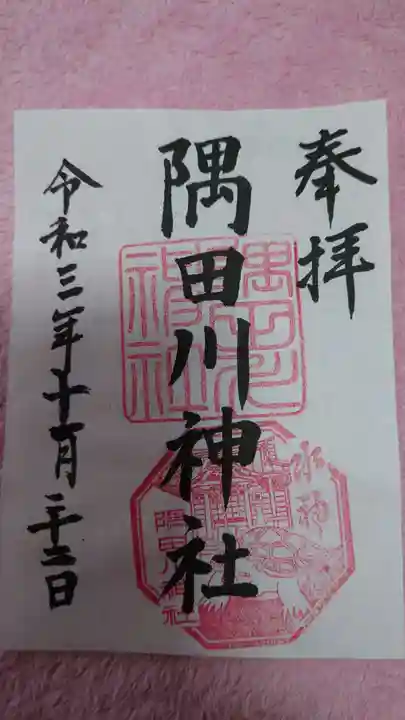 奉拝
隅田川神社
令和三年十一月二十二日
水神
隅田川神社